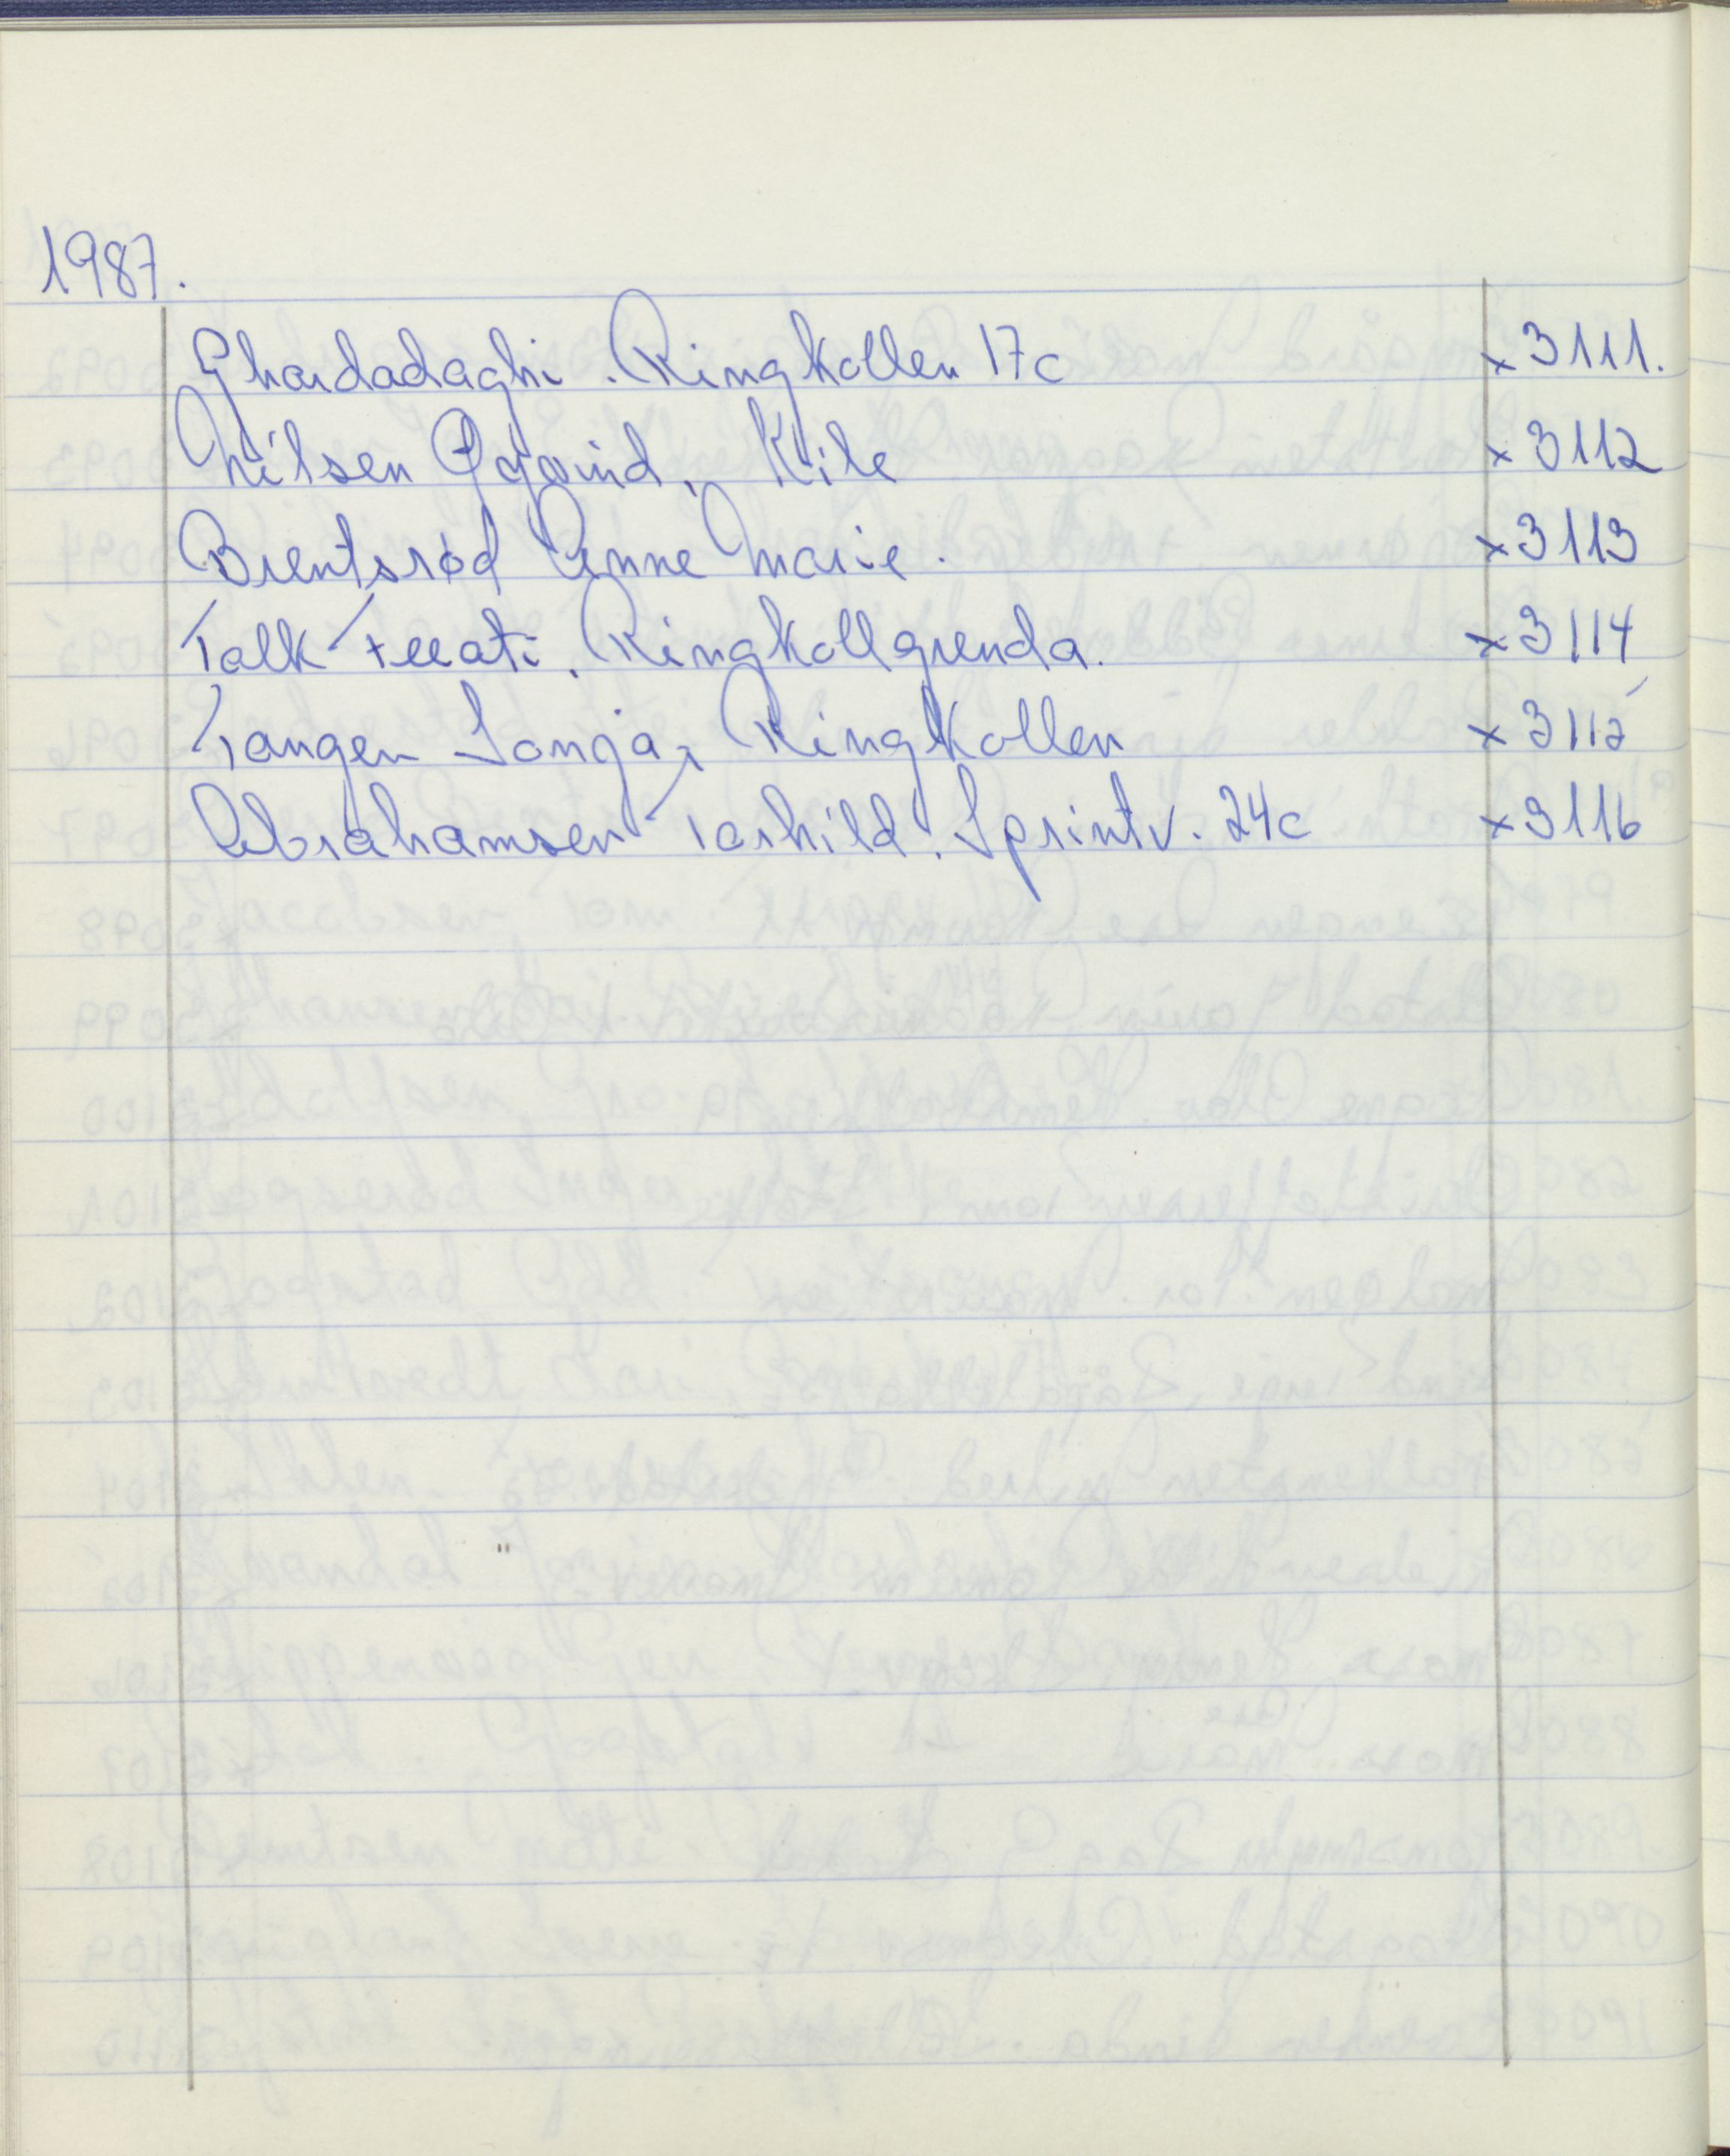 1987.
Ghardadaghi. Ringkollen 17c x 3111.
Nilsen Øyvind, Kile x 3112
Brentsrød Anne Marie. x 3113
Talk, Ringkollgrenda. x 3114
Tangen Sonja, Ringkollen x 3115
Abrahamsen Torhild. Sprintv. 24c x 3116